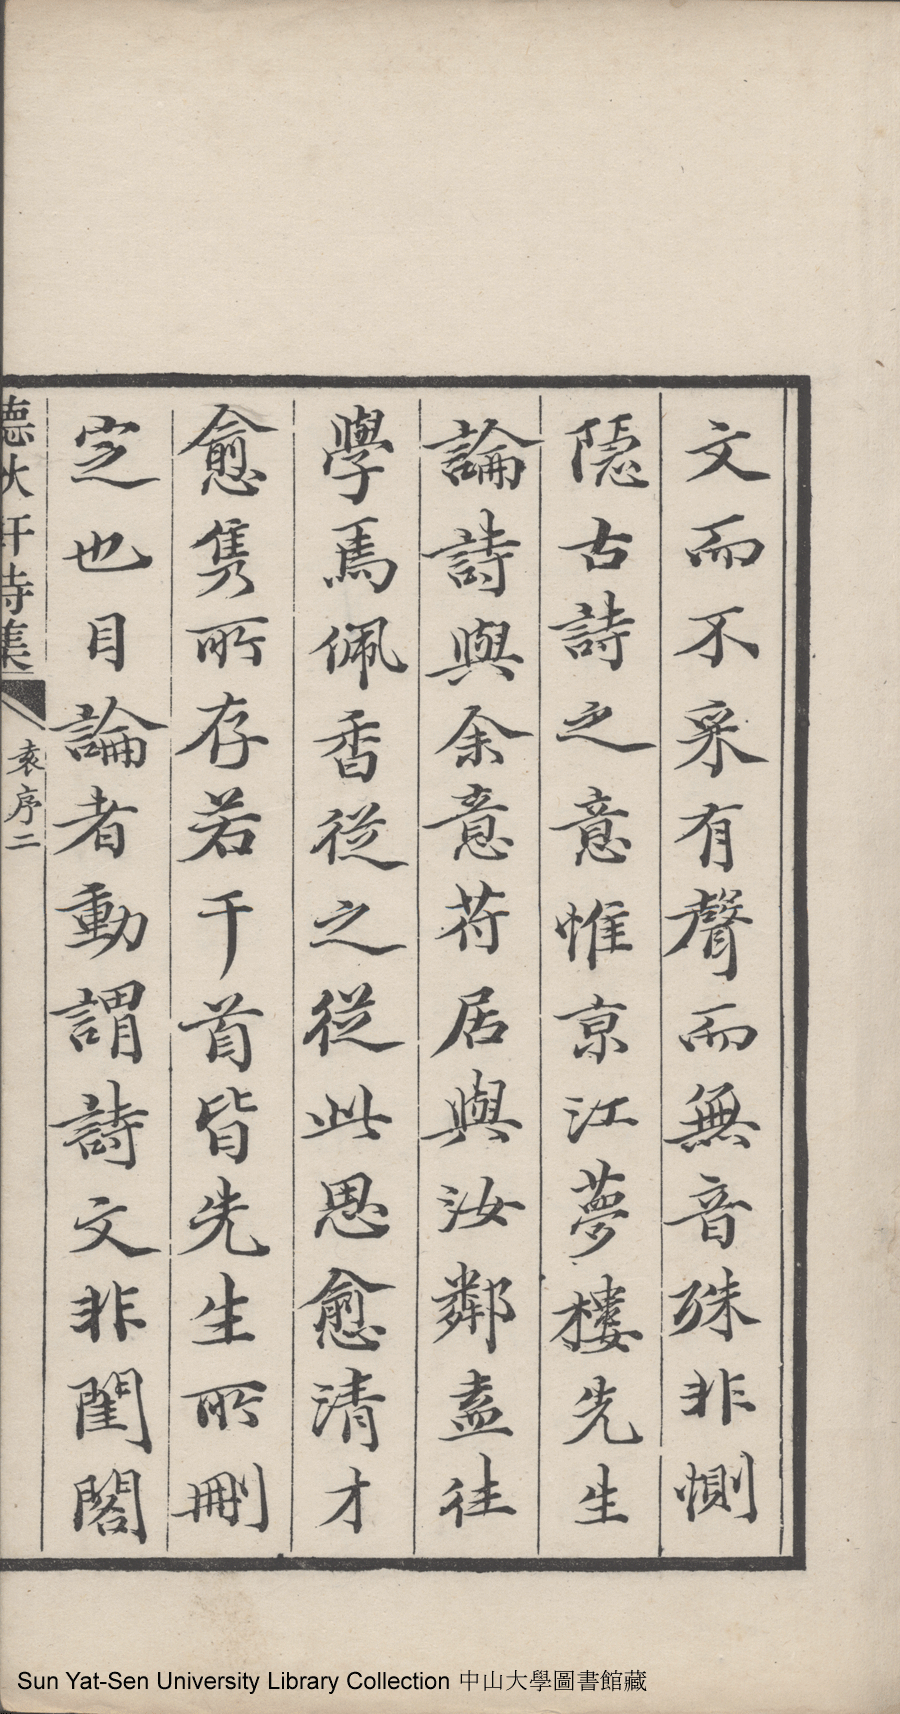 文而不采有聲而無音殊非惻
隱古詩之意惟京江夢樓先生
論詩與余意符居與汝鄰盍往
學焉佩香從之從此思愈清才
愈雋所存若干首皆先生所刪
定也目論者動謂詩文非閨閣
秋軒詩集
袁序二
Sun Yat-Sen University Library Collection 中山大學圖書館藏